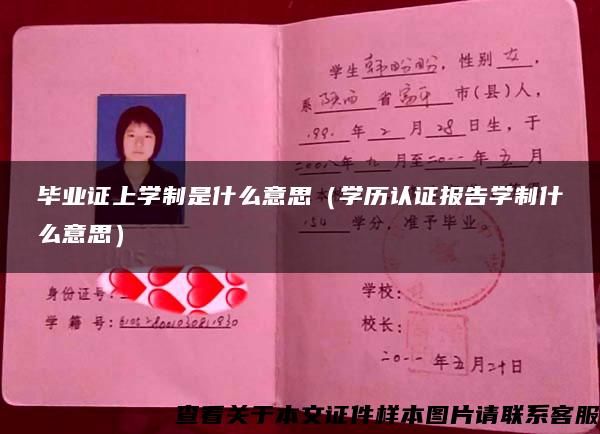 学生韩盼盼，性别女，
系陕西省富平市(县)人，
1991年2月28日生，于
二00八年九月至二0一一年五月
毕业证上学制是什么意思（学历认证报告学制什
么意思）
154学分，准予毕业。
身份证号：
学籍号：
学校：
校长：
二0一一年五月二十日
查看关于本文证件样本图片请联系客服